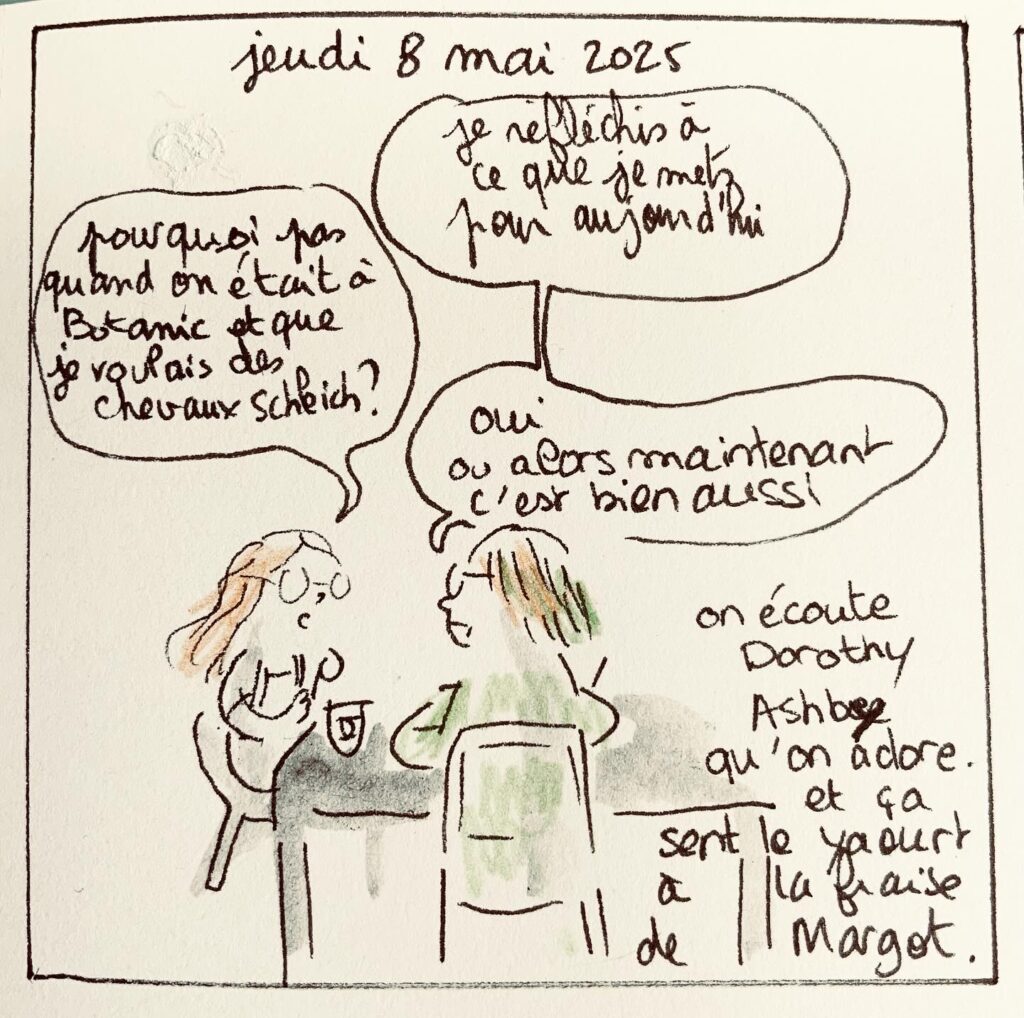 jeudi 8 mai 2025
je réfléchis à
ce que je mets
pour aujourd'hui
pourquoi pas
quand on était à
Botanic et que
je voulais des
chevaux schleich?
oui
ou alors maintenant
c'est bien aussi
on écoute
Dorothy
Ashby
qu'on adore.
et ça
sent le yaourt
à la fraise
de Margot.